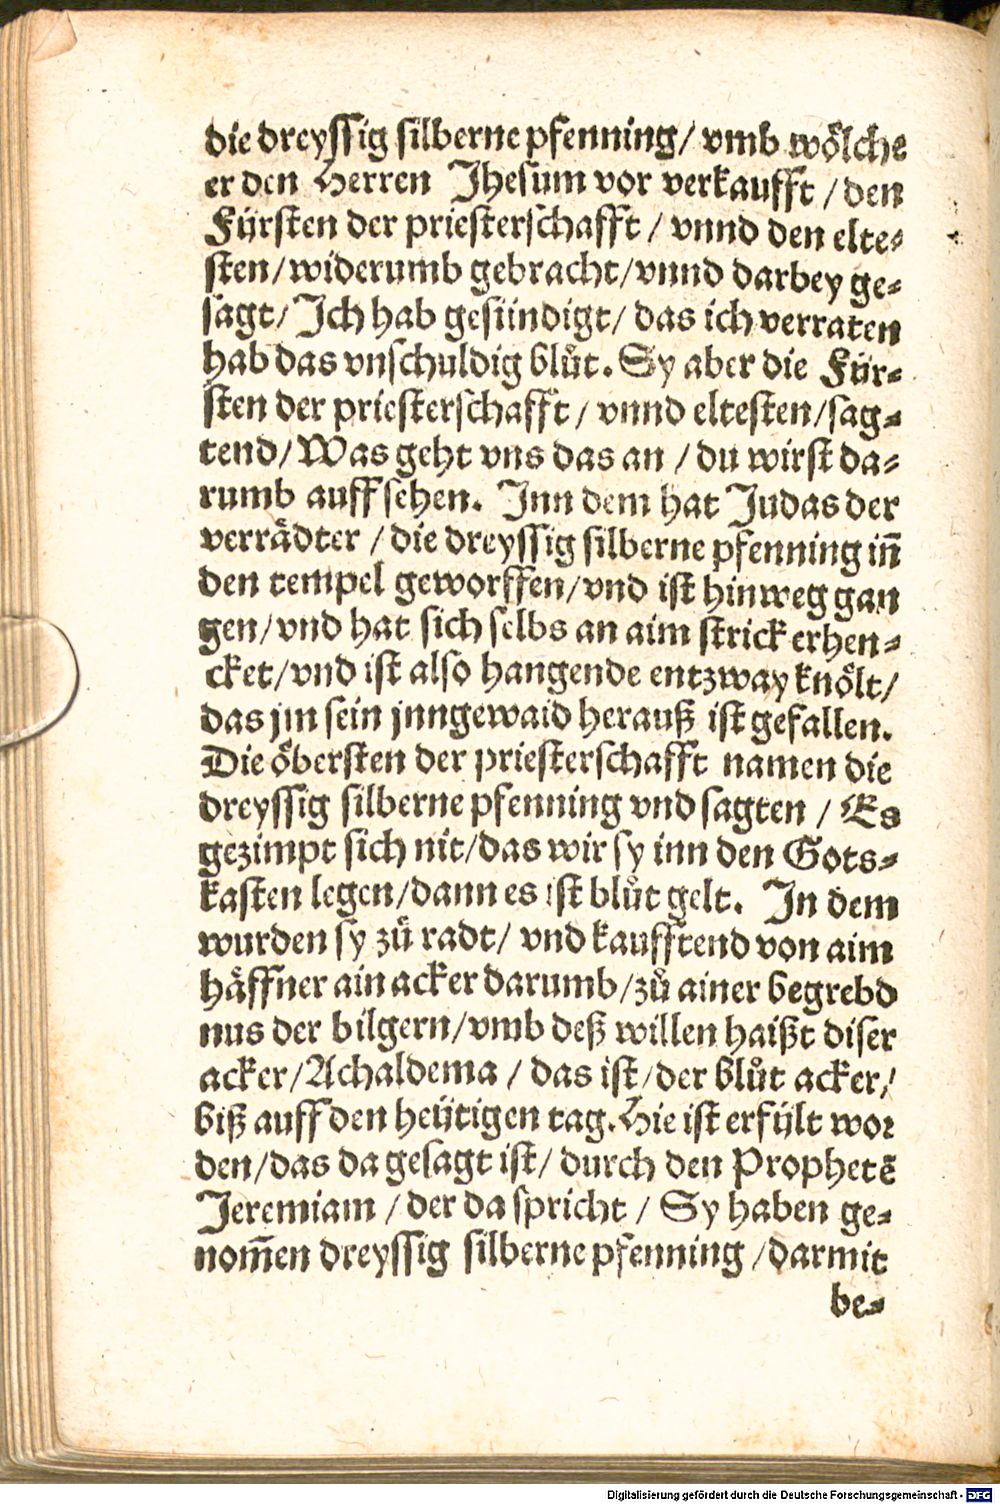 die dreyssig silberne pfenning/ vmb wölche
er den Herren Jhesum vor verkaufft / den
Fürsten der priesterschafft / vnnd den elte-
sten/ widerumb gebracht/ vnnd darbey ge-
sagt/ Ich hab gesündigt/ das ich verraten
hab das vnschuldig blůt. Sy aber die Für-
sten der priesterschafft / vnnd eltesten/ sag-
tend/ Was geht vns das an / du wirst da-
rumb auff sehen. Inn dem hat Judas der
verrädter / die dreyssig silberne pfenning in̄
den tempel geworffen/ vnd ist hinweg gan
gen/ vnd hat sich selbs an aim strick erhen-
cket/ vnd ist also hangende entzway knölt/
das jm sein jnngewaid herauß ist gefallen.
Die öbersten der priesterschafft namen die
dreyssig silberne pfenning vnd sagten / Es
gezimpt sich nit/ das wir sy inn den Gots-
kasten legen/ dann es ist blůt gelt. In dem
wurden sy zů radt/ vnd kaufftend von aim
häffner ain acker darumb/ zů ainer begrebd
nus der bilgern/ vmb deß willen haißt diser
acker/ Achaldema / das ist/ der blůt acker/
biß auff den heütigen tag. Hie ist erfült wor
den/ das da gesagt ist/ durch den Prophetē
Jeremiam / der da spricht / Sy haben ge-
nom̄en dreyssig silberne pfenning / darmit
be-
Digitalisierung gefördert durch die Deutsche Forschungsgemeinschaft - DFG